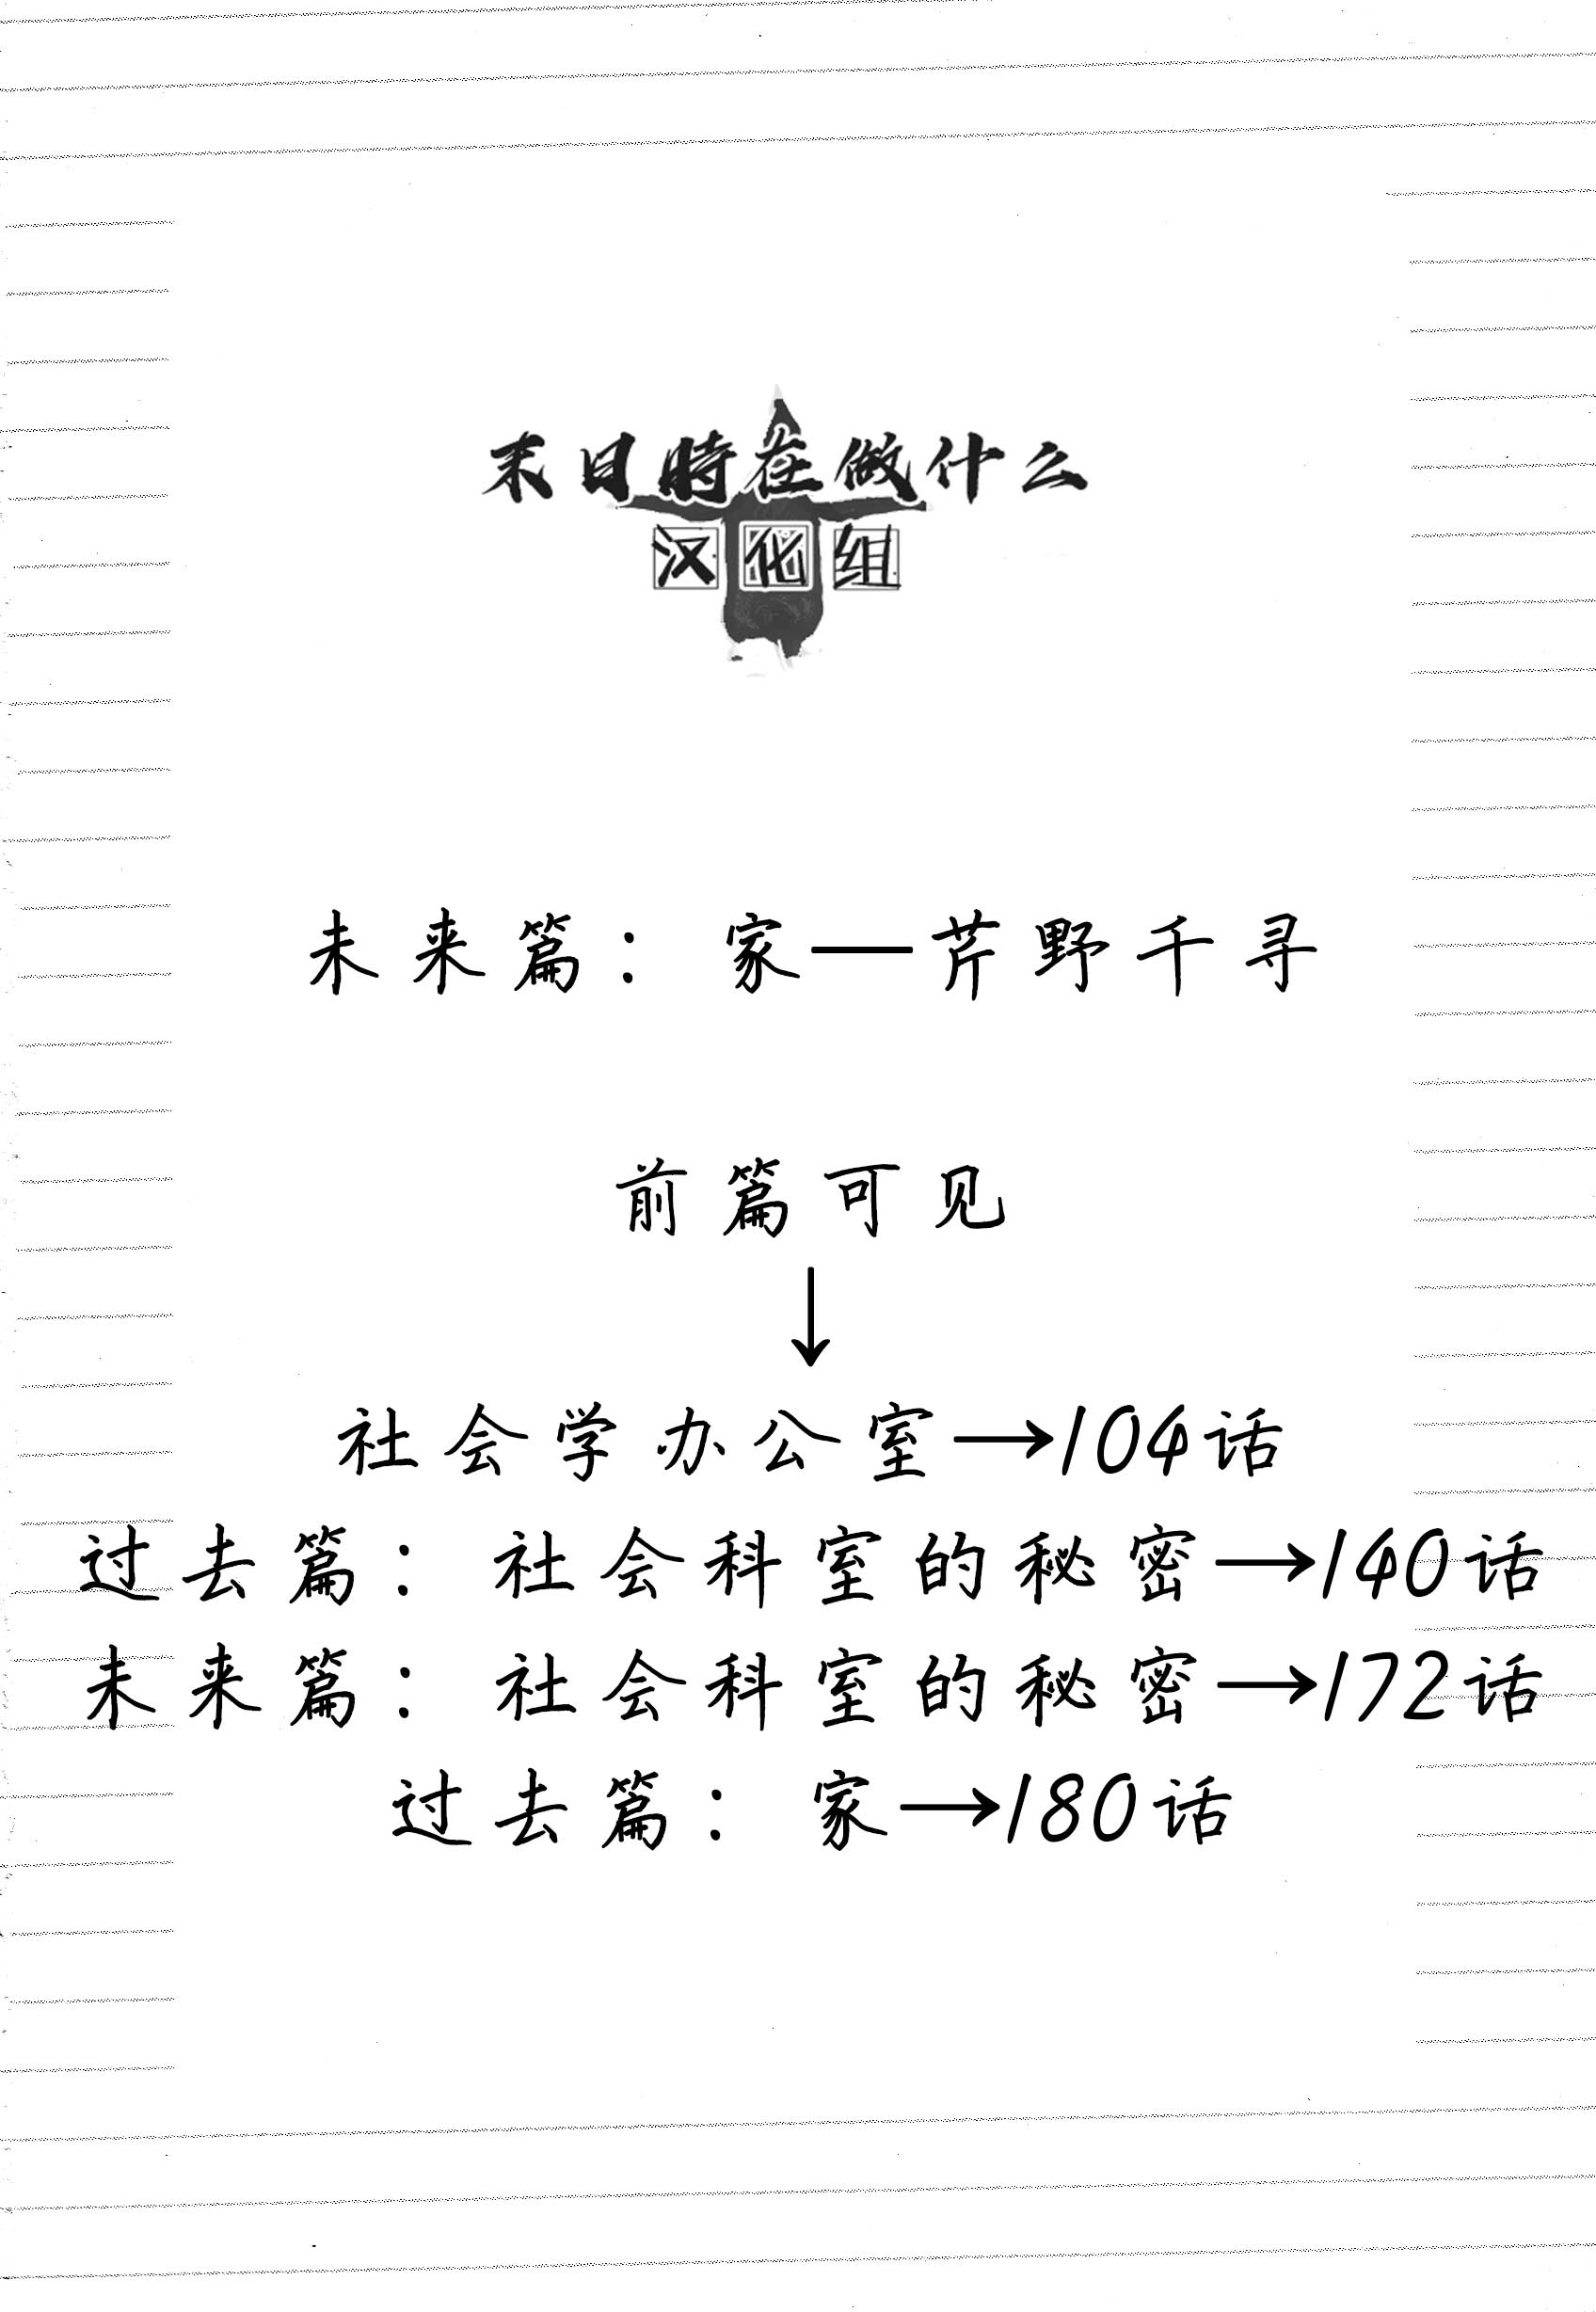 末日時在做什么
汉化组
未来篇：家—芹野千寻
前篇可见
↓
社会学办公室→104话
过去篇：社会科室的秘密→140话
未来篇：社会科室的秘密→172话
过去篇：家→180话